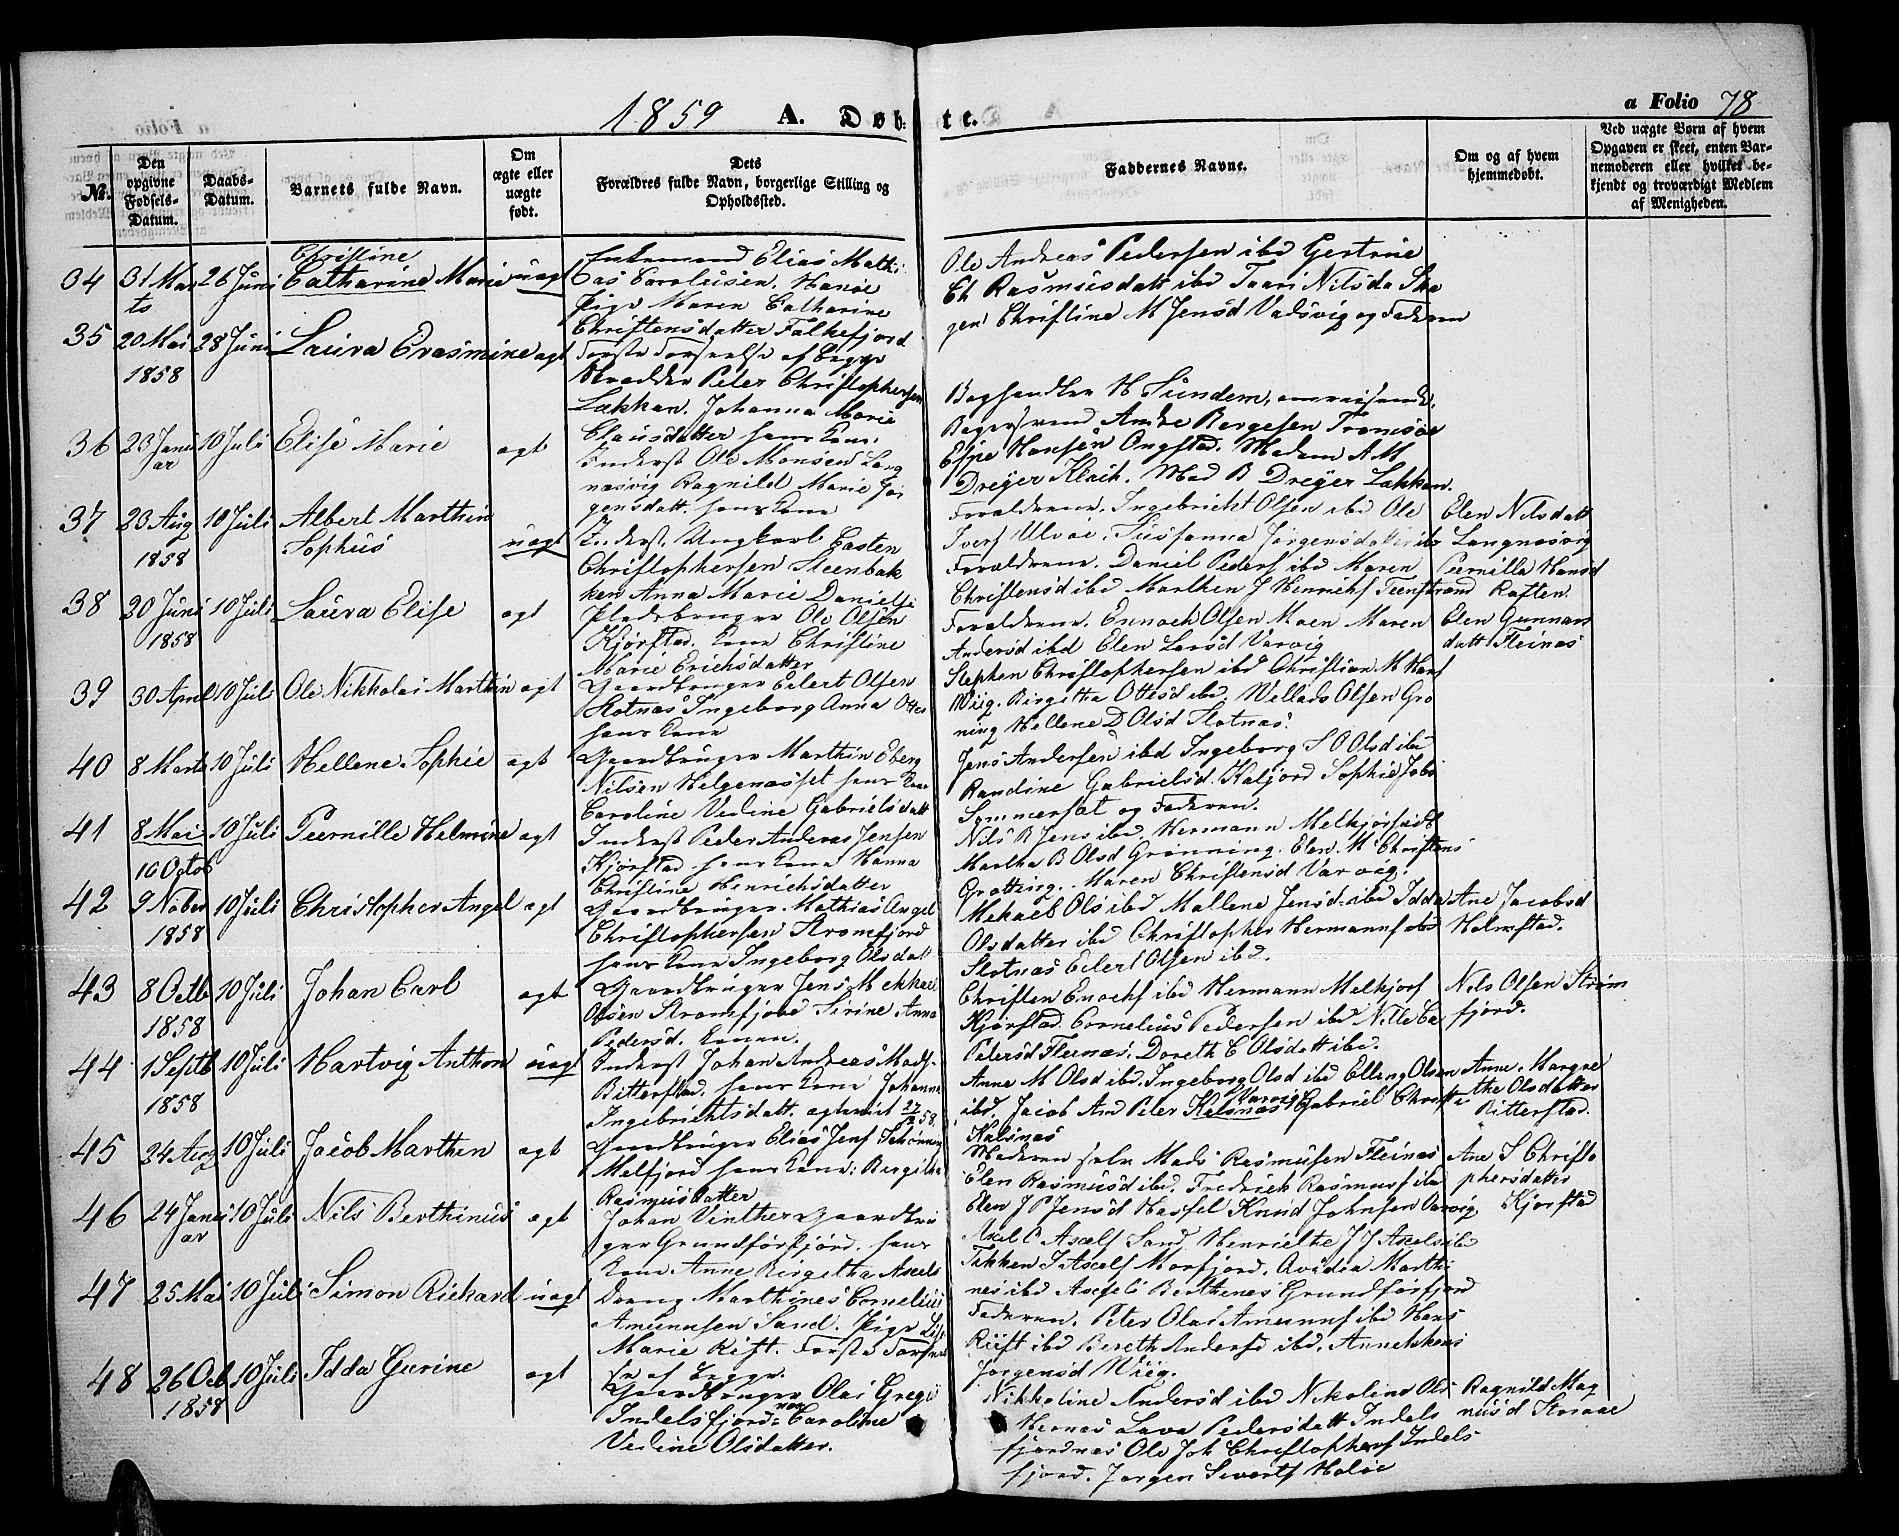 1859 A. Døb- te. a Folio 78
Nr.
Den opgivne Fødsels-Datum.
Daabs-Datum.
Barnets fulde Navn.
Om ægte eller uægte født.
Dets Forældres fulde Navn, borgerlige Stilling og Opholdssted.
Faddernes Navne.
Om og af hvem hjemmedøbt.
Ved uægte Børn af hvem Opgaven er skeet, enten Barnemoderen eller hvilket bekjendt og troværdigt Medlem af Menigheden.
34 31 Marts 26 Juni Christine Catharine Marie uægt
Enkemand Elias Mathi
as Carolusen. Hanøe
Pige Maren Catharine
Christensdatter Falkefjord
Første Forseelse af Begge
Ole Andreas Pedersen ibd Gertrine
El Rasmusdatt ibd Taari Nilsda Ska
gen Christine M Jensd Vadsvig og Faderen
35 20 Mai 1858 28 Juni Laura Erasmine ægt
Skrædder Peter Christophersen
Lækkan. Johanna Marie
Clausdatter hans Kone.
Boghandler H Sundem,
Andr Bergesen Tromsøe
Espe Hansen Ongstad. Madam A M
Dreyer Klaik. Mad B Dreyer Lækkan.
36 23 Januar 10 Juli Elise Marie ægt
Inderst Ole Monsen Lang
næsvig Ragnild Marie Jør
gensdatt. hans Kone
Forældrene. Ingebricht Olsen ibd Ole
Ivers Ulvøe. Susanna Jørgensdatter ibd
Elen Nilsdatt
Langnæsvig
37 23 Aug 1858 10 Juli Albert Marthin Sophus uægt
Inderst Ungkarl Easten
Christophersen Steenbak
ken Anna Marie Daniels
Forældrene. Daniel Peders ibd Maren
Christensd ibd Marthen J Henrichs Teenstrand
Pernilla Hansd
Raften.
38 20 Juni 1858 10 Juli Laura Elise ægt
Pladsbruger Ole Olsen
Kjørstad. Kone Christine
Marie Erichsdatter
Forældrene. Ennoch Olsen Moen Maren
Andersd ibd Elen Larsd Varvig
Elen Gunnars
datt Fleinæs
39 30 April 10 Juli Ole Nikkolai Marthin ægt
Gaardbruger Eilert Olsen
Slotnæs Ingeborg Anna Ottes
hans Kone
Stephen Christophersen ibd Christian M Hans
Wiig. Birgitha Ottesd ibd. Vellads Olsen Grø
ning Hellene D Olsd Slotnæs.
40 8 Marts 10 Juli Hellene Sophie ægt
Gaardbruger Marthin Eberg
Nilsen Helgenæsset hans Kone
Caroline Vedine Gabrielsdatt
Jens Andersen ibd Ingeborg S O Olsd ibd
Randine Gabrielsd. Kaljord Sophie Jobs
Sommersæt og Faderen.
41 8 Mai 10 Juli Peernille Helmine ægt
16 Octob
Inderst Peder Andreas Jensen
Kjørstad hans Kone Hanna
Christine Henrichsdatter
Nils B Jens ibd. Hermann Melkjorsen
Martha B Olsd Grønning. Elen M Christens
Grøtting. Maren Christensd Varvig.
42 9 Nober 1858 10 Juli Christopher Angel ægt
Gaardbruger. Mathias Angel
Christophersen Strømfjord
hans Kone Ingeborg Olsdat
Mekael Ols ibd Mallene Jensd ibd Idda
Olsdatter ibd Christopher Hermanns
Slotnæs Eilert Olsen ibd.
Ane Jacobsd
Holmstad.
43 8 Octb 1858 10 Juli Johan Carl ægt
Gaardbruger Jens Mekkael
Olsen Strømfjord Sirine Anna
Pedersd. Konen.
Christen Enochs ibd Hermann Melkjors
Kjørstad. Cornelius Pedersen ibd Nille Ca
Pedersd Fleinæs. Doreth C Olsdatt ibd.
Nils Olsen Strøm
fjord.
44 1 Septb 1858 10 Juli Hartvig Anthon uægt
Inderst Johan Andreas Mads
Bitterstad. hans Kone Johanna
Ingebrichtsdatt. ægteviet 27/12 58.
Anne M Olsd ibd. Ingeborg Olsd ibd Elling Olsen
ibd. Jacob And Peter Kalsnæs Varvig Gabriel Christi
Kalsnæs
Anne Margre
the Olsdatter
Bitterstad.
45 24 Aug 10 Juli Jacob Marthin ægt
Gaardbruger Elias Jens
Melfjord hans Kone. Birgitha
Rasmusdatter
Moderen selv Mads Rasmusen Fleinæs
Elen Rasmusd ibd. Fredrich Rasmus ibd
Elen J P Jensd Hassel Knud Johnsen Varvig
Ane S Christo
phersdatter
Kjørstad
46 24 Januar 10 Juli Nils Berthinus ægt
Johan Vinther Gaardbru
ger Grundførfjord. hans
Kone Anne Birgitha Axels
Axel C Axels Sand Henriethe J J Axels ibd
Takken J Axels Morfjord. Avidia Marthi
nes ibd Axels Berthenes Grundførfjord
47 25 Mai 10 Juli Simon Rickard uægt
Dreng Marthines Cornelius
Amunnsen Sand. Pige Lise
Marie Rist. Første Forseel
se af Begge.
Faderen. Peter Olai Amunns ibd Hans
Riist ibd Bereth Anders ibd. Annekken
Jørgensd Wiig.
48 26 Oct 1858 10 Juli Idda Gurine ægt
Gaardbruger Olai Gregi
Indelsfjord Caroline
Vedine Olsdatter.
Nikkoline Andersd ibd Nikoline Ols
Hernæs Lava Pedersdatt Indels
fjordnæs Ole Joh Christophers Indels
fjord. Jørgen Siverts Haløe
Ragnild Mag
nusd Straae